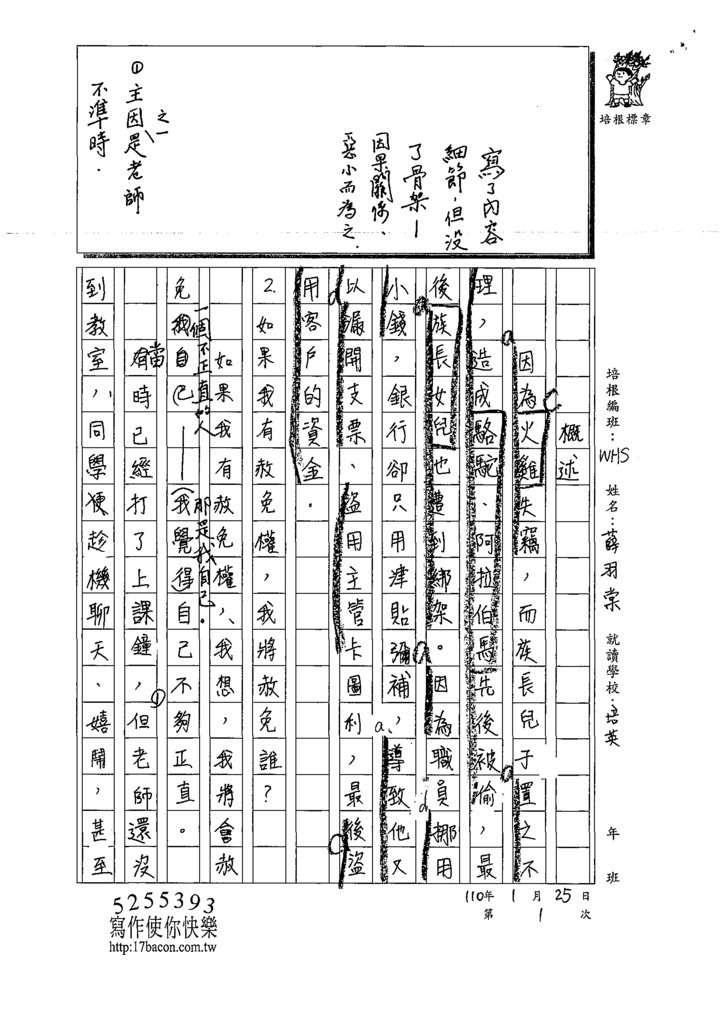 培根標章
培根編班：WHS 姓名：薛羽棠 就讀學校：培英 年 班
110年 1 月 25 日
第 1 次
寫了內容
細節，但沒
了骨架—
因果關係、
惡小而為之．
①主因是老師
之一
不準時．
概述
因為火雞失竊，而族長兒子置之不
理，造成駱駝、阿拉伯馬先後被偷，最
後族長女兒也遭到綁架。因為職員挪用
小錢，銀行卻只用津貼彌補，導致他又
以漏開支票、盜用主管卡圖利，最後盜
用客戶的資金。
2.如果我有赦免權，我將赦免誰？
如果我有赦免權，我想，我將會赦
免我自己——（我覺得自己不夠正直。
一個不正直的人 那是我自己。
當有時已經打了上課鐘，但老師還沒
①
到教室，同學便趁機聊天、嬉鬧，甚至
5255393
寫作使你快樂
http:17bacon.com.tw